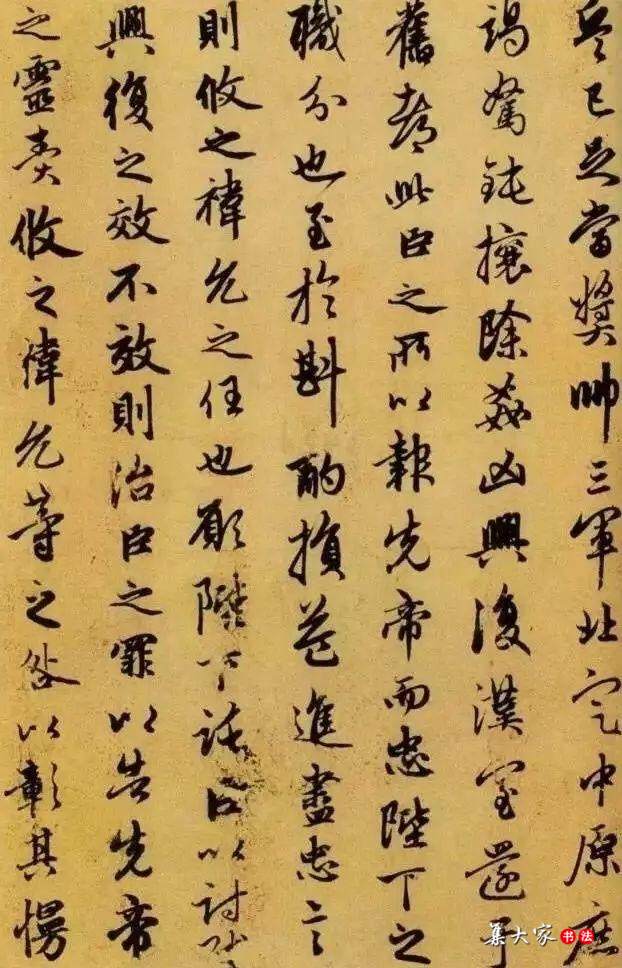 兵已足當獎帥三軍北定中原庶
竭駑鈍攘除姦凶興復漢室還于
舊都此臣之所以報先帝而忠陛下之
職分也至於斟酌損益進盡忠言
則攸之禕允之任也願陛下託臣以討賊
興復之效不效則治臣之罪以告先帝
之靈責攸之禕允等之咎以彰其慢
集大家书法